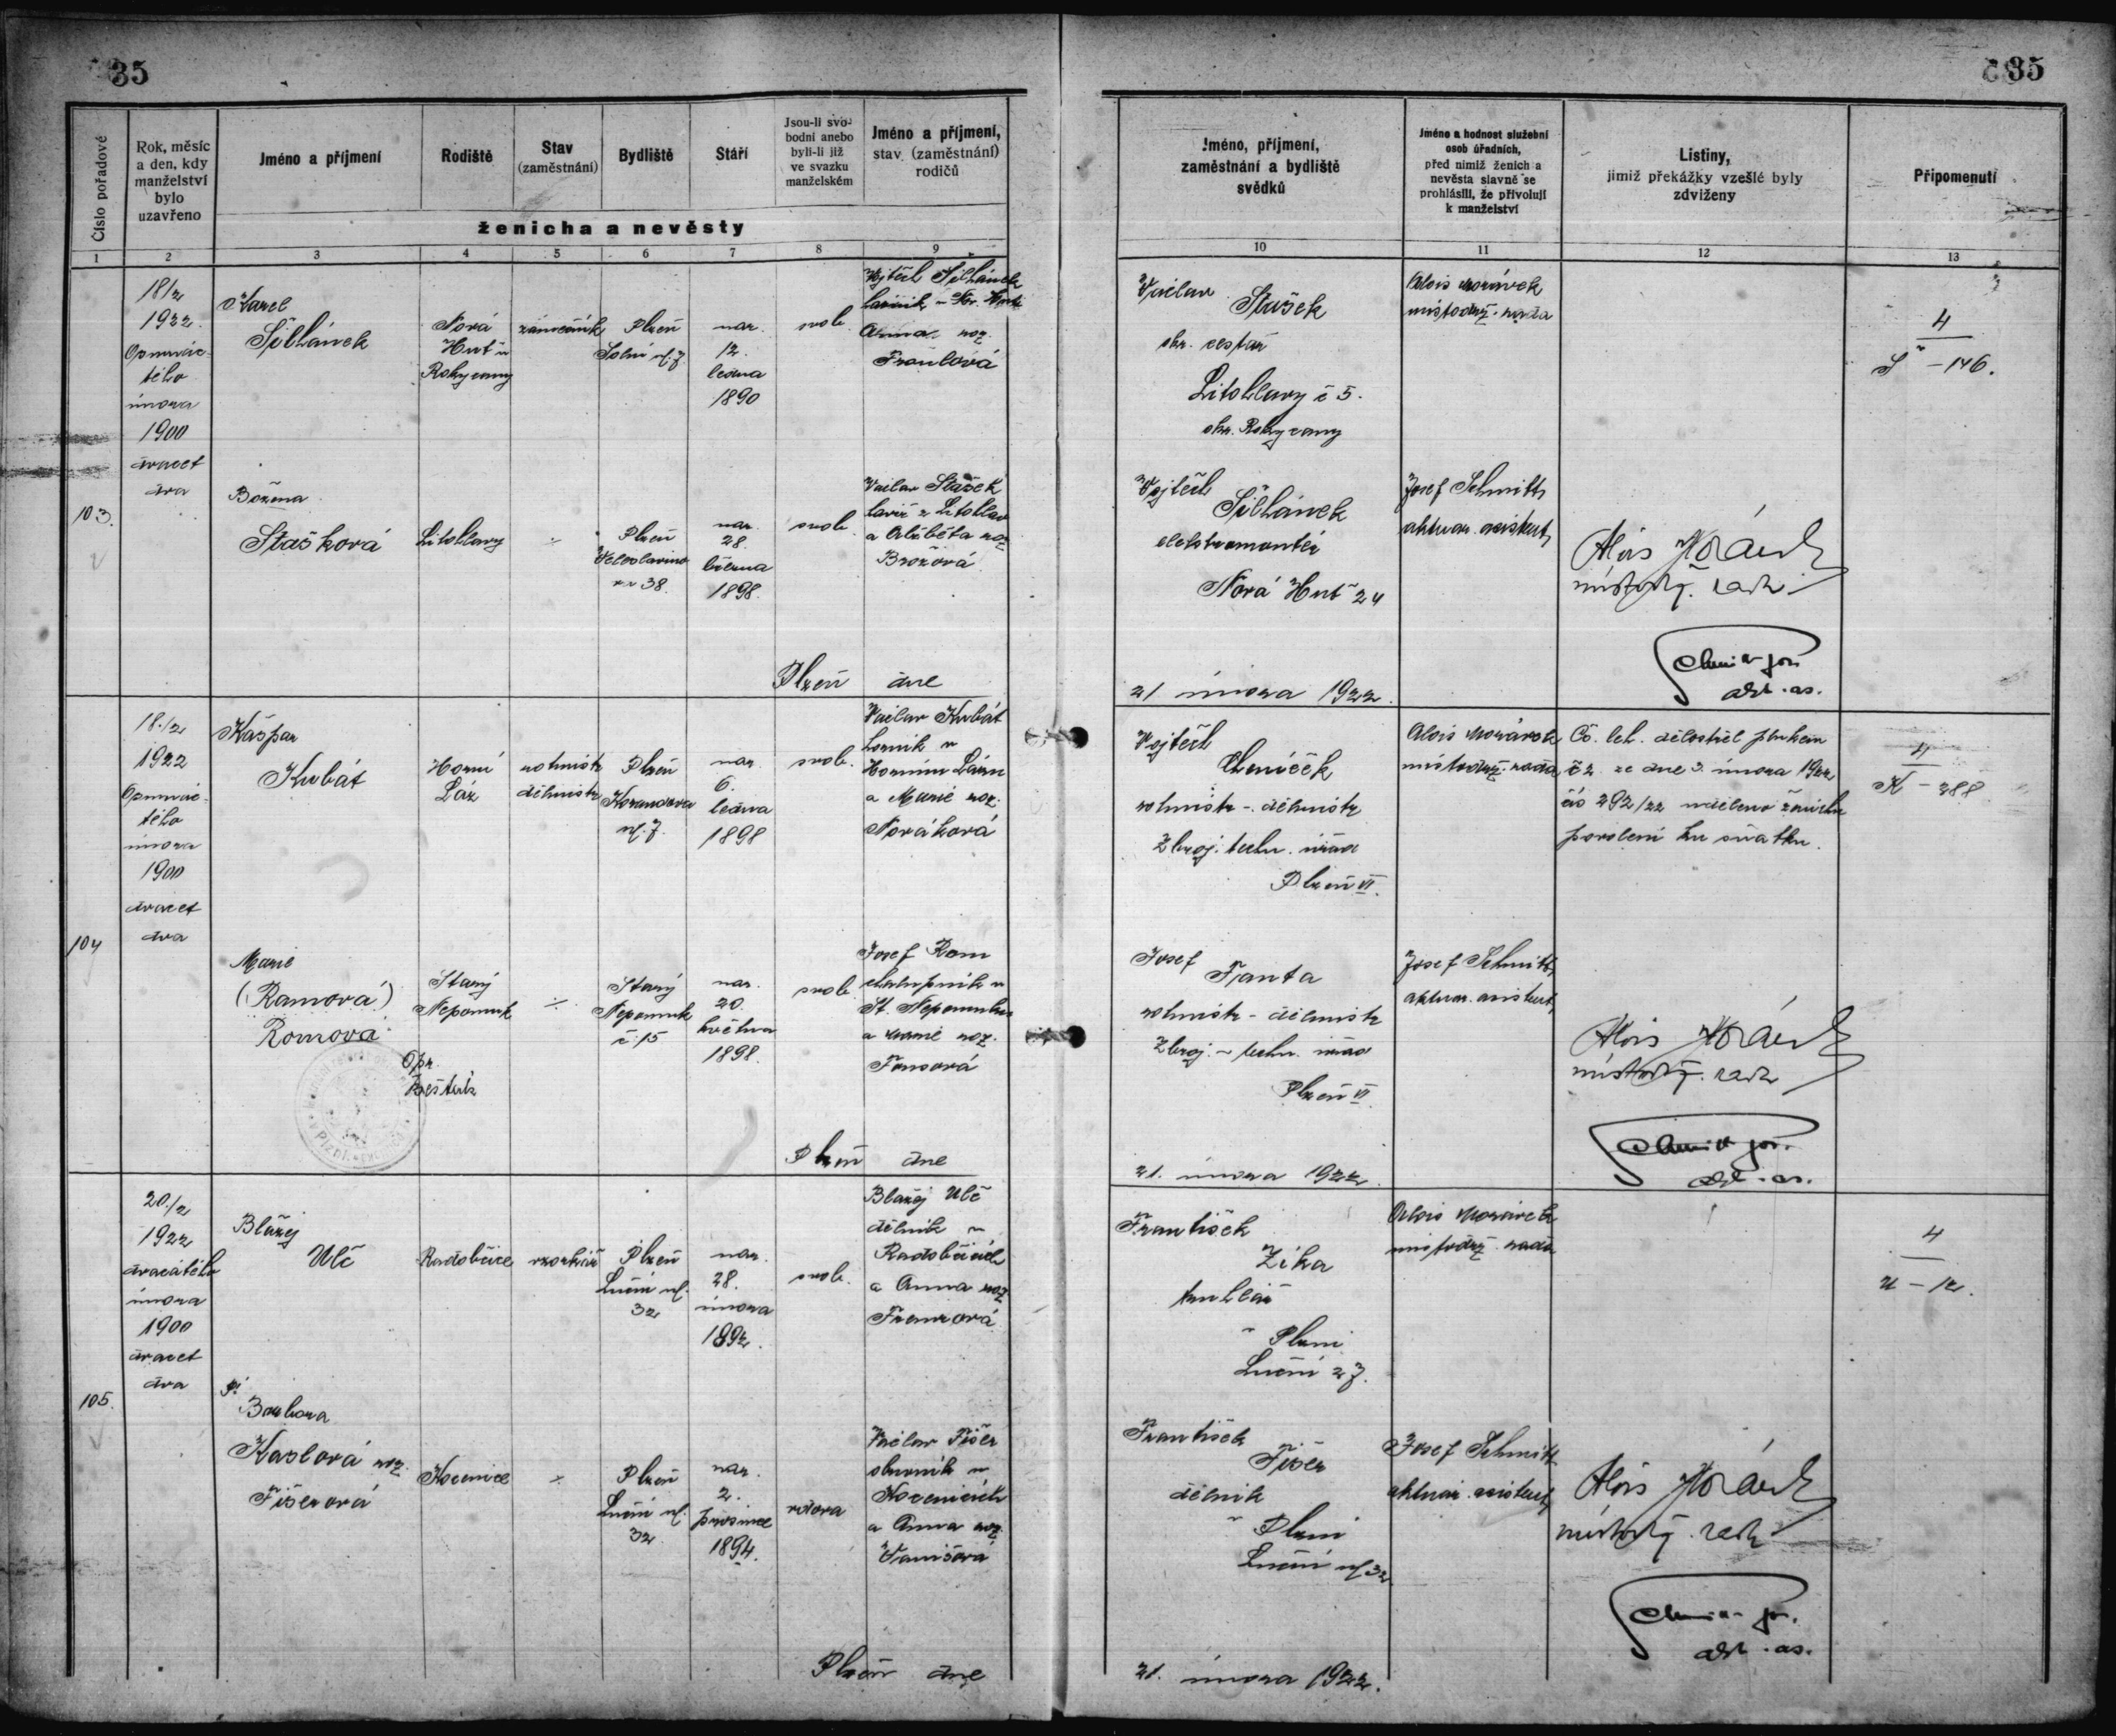 35
Číslo pořadové
Rok, měsíc
a den, kdy
manželství
bylo
uzavřeno
Jméno a příjmení
Rodiště
Stav
(zaměstnání)
Bydliště
Stáří
Jsou-li svo-
bodni anebo
byli-li již
ve svazku
manželském
Jméno a příjmení,
stav (zaměstnání)
rodičů
ženicha a nevěsty
1
2
3
4
5
6
7
8
9
103.
18/2
1922.
Osmnác-
tého
února
1900
dvacet
dva
Karel
Šilhánek
Nová
Huť u
Rokycany
zámečník
Plzeň
Solní ul. 7
nar.
12.
ledna
1890
svob.
Vojtěch Šilhánek
Anna roz.
Božena
Stašková
Litohlavy
Plzeň
Veleslavína
38.
nar.
28.
března
1898.
svob.
Václav Stašek
a Alžběta roz
Brožová
Plzeň dne
104
18./2
1922
Osmnác-
tého
února
1900
dvacet
dva
Kašpar
Kubát
Horní
Láz
rotmistr
dělmistr
Plzeň
Korandova
ul. 7
nar.
6.
ledna
1898
svob.
Václav Kubát
horník v
Horním Lázu
a Marie roz.
Nováková
Marie
(Ramová)
Romová
Opr.
Starý
Nepomuk
Starý
Nepomuk
č 15
nar.
20.
května
1898.
svob.
Josef Rom
chalupník v
St. Nepomuku
a Marie roz.
Plzeň dne
105.
20./2
1922
dvacátého
února
1900
dvacet
dva
Blažej
Ulč
Radobčice
Plzeň
Luční ul.
32
nar.
28.
února
1892.
svob.
Blažej Ulč
dělník v
Radobčicích
a Anna roz
Barbora
Kaslová roz.
Fišerová
Kocenice
Plzeň
Luční ul.
32
nar.
2.
prosince
1894.
vdova
Václav Fišer
v
Kocenicích
a Anna roz.
Plzeň dne
35
Jméno, příjmení,
zaměstnání a bydliště
svědků
Jméno a hodnost služební
osob úředních,
před nimiž ženich a
nevěsta slavně se
prohlásili, že přivolují
k manželství
Listiny,
jimiž překážky vzešlé byly
zdviženy
Připomenutí
10
11
12
13
Václav
Stašek
obr. cestář
Litohlavy č 5.
okr. Rokycany
Alois Morávek
místodrž. rada
4
S - 146.
Vojtěch
Šilhánek
elektromontér
Nová Huť 24
Josef Schmitt,
aktuar. asistent,
Alois Morávek
místodrž. rada
Schmitt Jos.
akt. as.
21 února 1922.
Vojtěch
Chmíček
rotmistr - dělmistr
Zbroj. techn. úřad
Plzeň VI.
Alois Morávek
místodrž. rada
Čs. leh. dělostřel. plukem
č 2. ze dne 3. února 1922
čís 292/22 uděleno ženichu
povolení ku sňatku.
4
K - 288
Josef
Fanta
rotmistr - dělmistr
Zbroj. - techn. úřad
Plzeň VI
Josef Schmitt,
aktuar. asistent,
Alois Morávek
místodrž. rada
Schmitt Jos.
akt. as.
21. února 1922.
František
Zíka
truhlář
v Plzni
Luční 27.
Alois Morávek
místodrž. rada
4
U - 12.
František
Fišer
dělník
v Plzni
Luční ul 32
Josef Schmitt
aktuar. asistent,
Alois Morávek
místodrž. rada
Schmitt Jos.
akt. as.
21. února 1922.